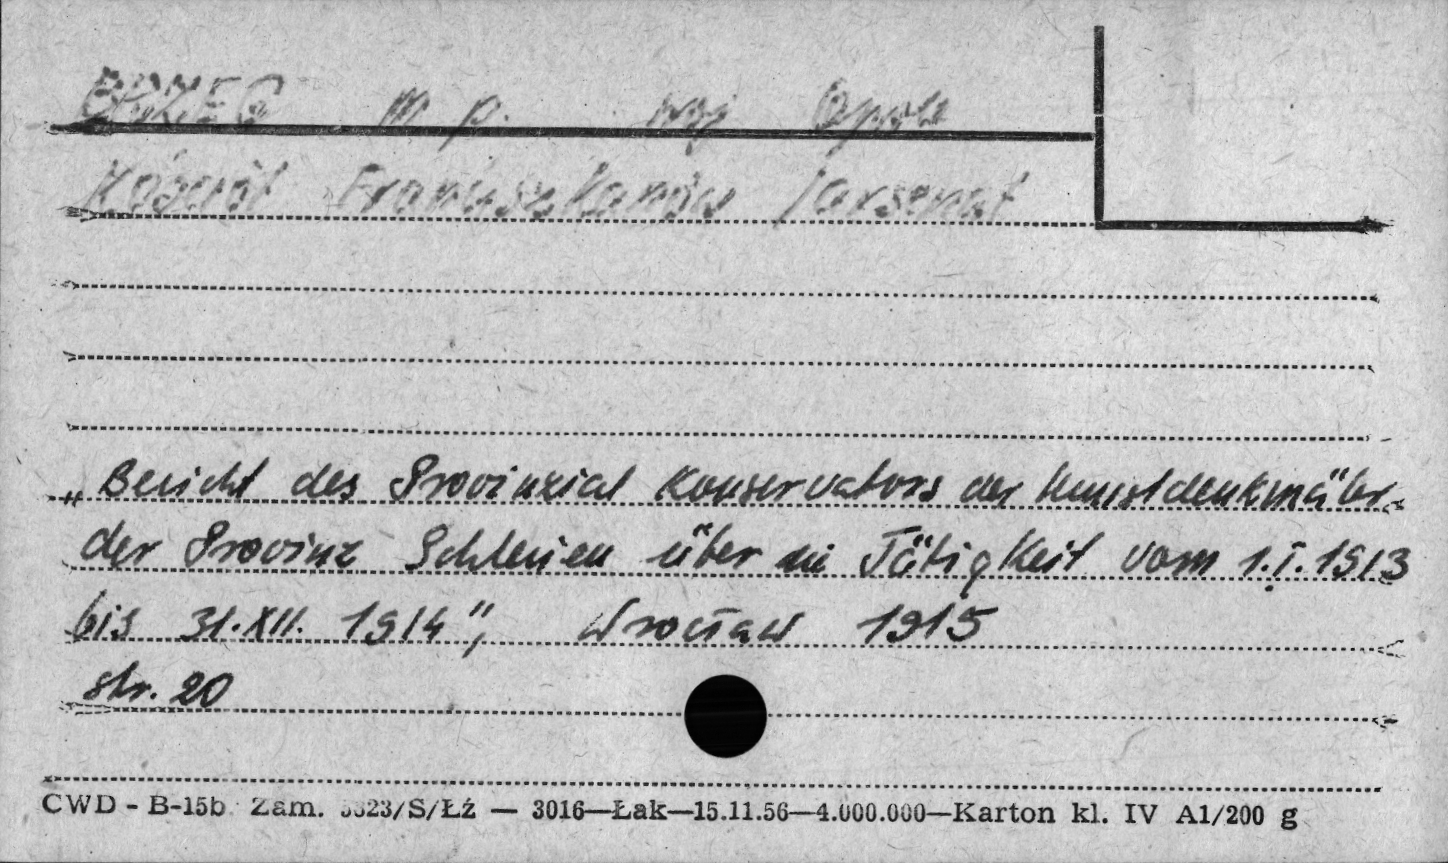 BRZEG m. p. woj Opole
Kościół Franciszkanów /arsenał
„Bericht des Provinzial Konservators der Kunstdenkmäler
der Provinz Schlesien über die Tätigkeit vom 1.I.1913
bis 31.XII. 1914", Wrocław 1915
str. 20
CWD - B-15b Zam. 3323/S/Łź — 3016—Łak—15.11.56—4.000.000—Karton kl. IV A1/200 g